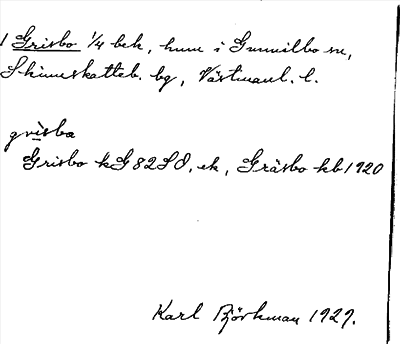 1 Grisbo 1/4 beb, hmn i Gunnilbo sn,
Skinnskatteb. bg, Västmanl. l.
grisba
Grisbo kG82SÖ, ek, Gräsbo kb1920
Karl Björkman 1929.